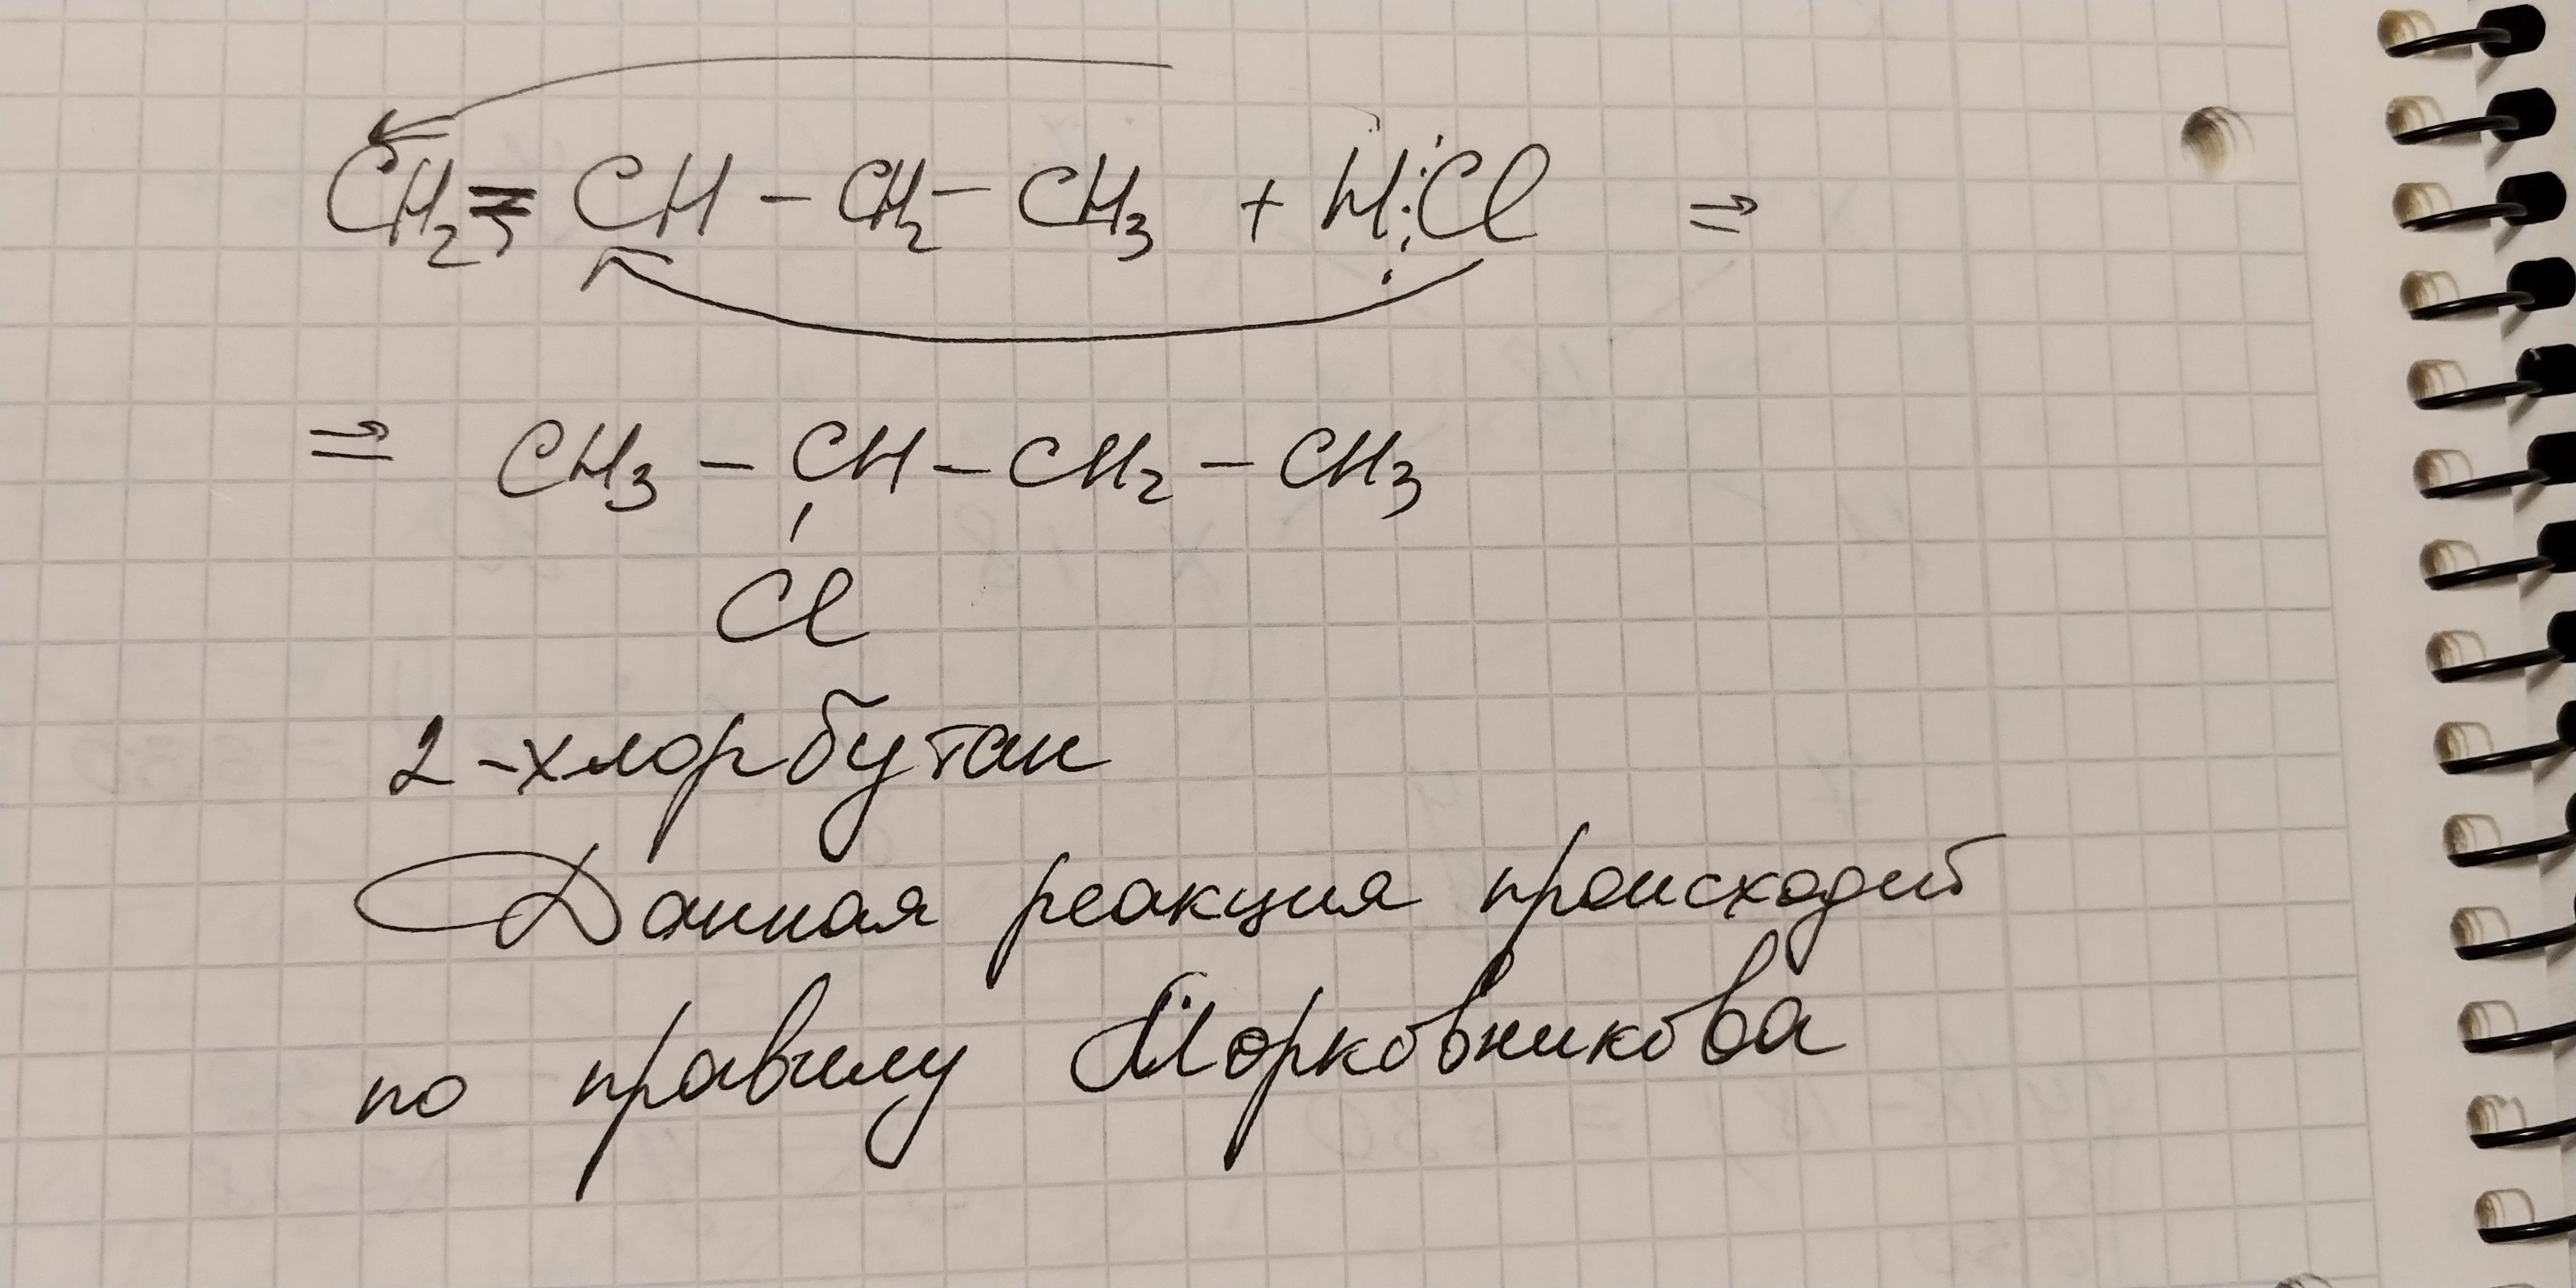 CH₂ = CH - CH₂ - CH₃ + H⋮Cl ⇒
⇒ CH₃ - CH - CH₂ - CH₃
Cl
2-хлорбутан
Данная реакция происходит
по правилу Морковникова